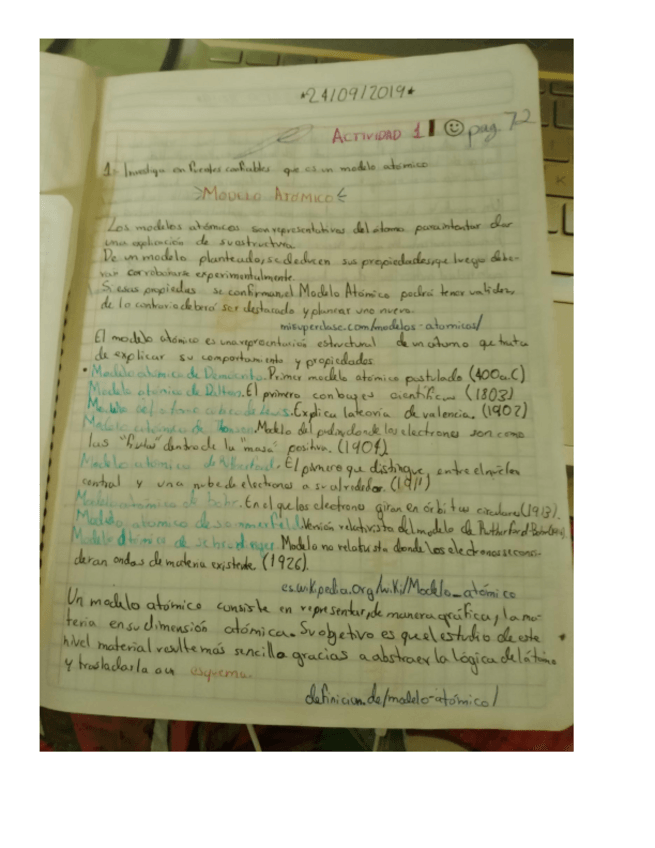 *24/09/2019*
ACTIVIDAD 1 pag. 72
1- Investiga en fuentes confiables que es un modelo atómico.
>MODELO ATÓMICO<
Los modelos atómicos son representativos del atomo para intentar dar
una explicación de su estructura.
De un modelo planteado, se deducen sus propiedades, que luego debe-
ran corroborarse experimentalmente.
Si esas propiedades se confirman el Modelo Atómico podrá tener validez,
de lo contrario deberá ser descartado y planear uno nuevo.
misuperclase.com/modelos-atomicos/
El modelo atómico es una representación estructural de un átomo que trata
de explicar su comportamiento y propiedades.
• Modelo atómico de Demócrito. Primer modelo atómico postulado (400 a.C)
Modelo atómico de Dalton. El primero con bases científicas (1803)
Modelo del átomo cúbico de Lewis. Explica la teoría de valencia. (1902)
Modelo atómico de Thomson. Modelo del pudin, donde los electrones son como
las "frutas" dentro de la "masa" positiva. (1904)
Modelo atómico de Rutherford. El primero que distingue entre el núcleo
central y una nube de electrones a su alrededor. (1911)
Modelo atómico de Bohr. En el que los electrones giran en órbitas circulares (1913).
Modelo atomico de Sommerfeld. Versión relativista del modelo de Rutherford-Bohr
Modelo atómico de Schrodinger. Modelo no relativista donde los electrones se consi-
deran ondas de materia existente (1926).
es.wikipedia.org/wiki/Modelo_atómico
Un modelo atómico consiste en representar, de manera gráfica, la ma-
teria en su dimensión atómica. Su objetivo es que el estudio de este
nivel material resulte más sencillo gracias a abstraer la lógica del átomo
y trasladarla a un esquema.
definicion.de/modelo-atomico/